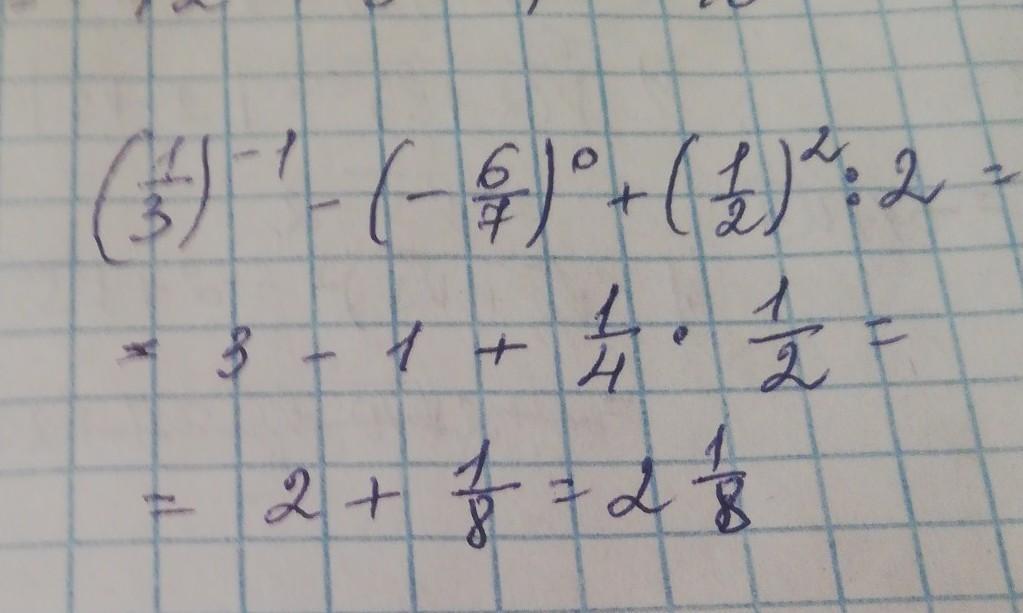 (1/3)^-1 - (- 6/7)^0 + (1/2)^2 : 2 =
= 3 - 1 + 1/4 · 1/2 =
= 2 + 1/8 = 2 1/8